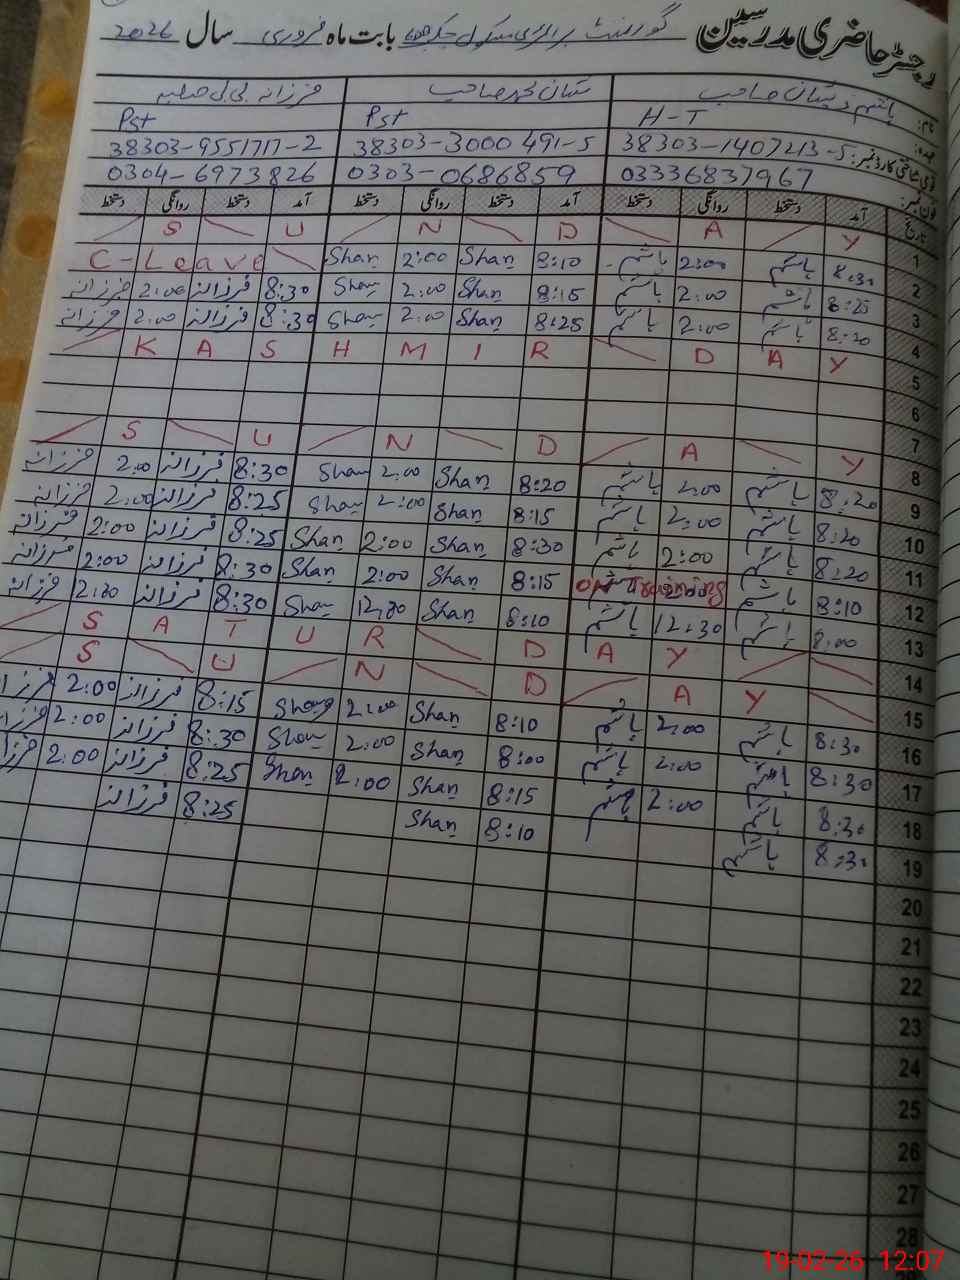 رجسٹر حاضری مدرسین گورنمنٹ پرائمری سکول بابت ماہ فروری سال 2026
نام: ہاشم صاحب شان محمد صاحب فرزانہ بی بی صاحبہ
عہدہ: H-T Pst Pst
قومی شناختی کارڈ نمبر: 38303-1407213-5 38303-3000491-5 38303-9551717-2
فون نمبر: 03336837967 0303-0686859 0304-6973826
تاریخ آمد دستخط روانگی دستخط آمد دستخط روانگی دستخط آمد دستخط روانگی دستخط
1 S U N D A Y
2 8:30 ہاشم 2:00 ہاشم 8:10 Shan 2:00 Shan C-Leave
3 8:25 ہاشم 2:00 ہاشم 8:15 Shan 2:00 Shan 8:30 فرزانہ 2:00 فرزانہ
4 8:20 ہاشم 2:00 ہاشم 8:25 Shan 2:00 Shan 8:30 فرزانہ 2:00 فرزانہ
5 K A S H M I R D A Y
6
7
8 S U N D A Y
9 8:20 ہاشم 2:00 ہاشم 8:20 Shan 2:00 Shan 8:30 فرزانہ 2:00 فرزانہ
10 8:20 ہاشم 2:00 ہاشم 8:15 Shan 2:00 Shan 8:25 فرزانہ 2:00 فرزانہ
11 8:20 ہاشم 2:00 ہاشم 8:30 Shan 2:00 Shan 8:25 فرزانہ 2:00 فرزانہ
12 8:10 ہاشم On Training 8:15 Shan 2:00 Shan 8:30 فرزانہ 2:00 فرزانہ
13 8:00 ہاشم 12:30 ہاشم 8:10 Shan 12:30 Shan 8:30 فرزانہ فرزانہ
14 S A T U R D A Y
15 S U N D A Y
16 8:30 ہاشم 2:00 ہاشم 8:10 Shan 2:00 Shan 8:15 فرزانہ 2:00 فرزانہ
17 8:30 ہاشم 2:00 ہاشم 8:00 Shan 2:00 Shan 8:30 فرزانہ 2:00 فرزانہ
18 8:30 ہاشم 2:00 ہاشم 8:15 Shan 2:00 Shan 8:25 فرزانہ 2:00 فرزانہ
19 8:30 ہاشم 8:10 Shan 8:25 فرزانہ
20
21
22
23
24
25
26
27
28
19-02-26 12:07